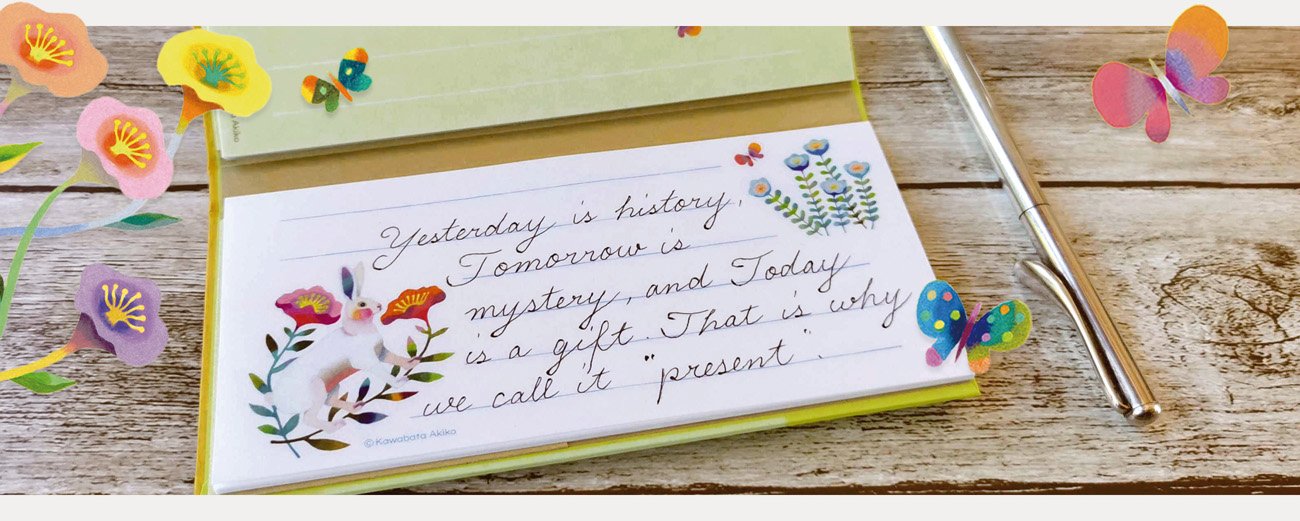 Akiko
Yesterday is history,
Tomorrow is
mystery, and Today
is a gift. That is why
we call it "present".
©Kawabata Akiko